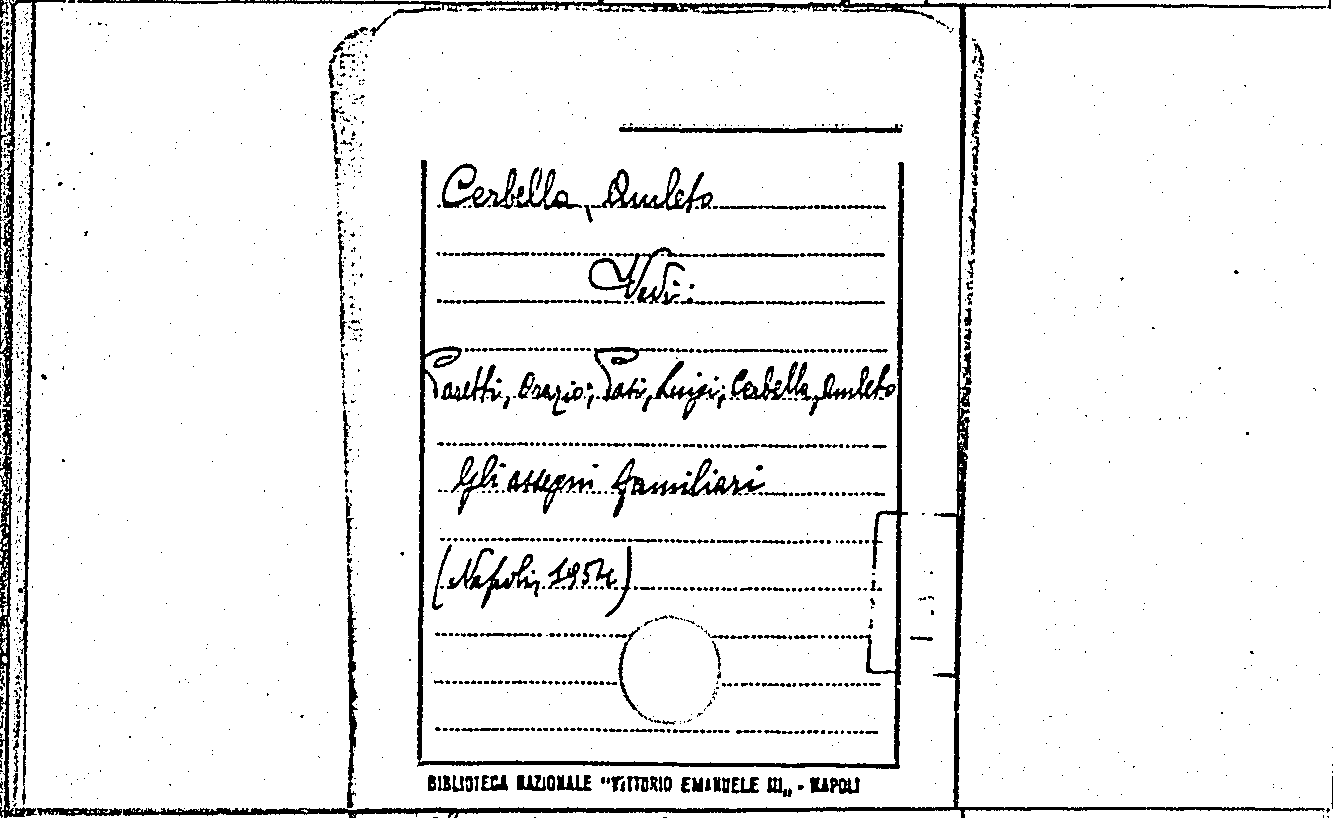 Cerbella, Amleto
Vedi:
Pasetti, Orazio; Pati, Luigi; Cerbella, Amleto
Gli assegni familiari
(Napoli, 1954)
BIBLIOTECA NAZIONALE "VITTORIO EMANUELE III„ - NAPOLI